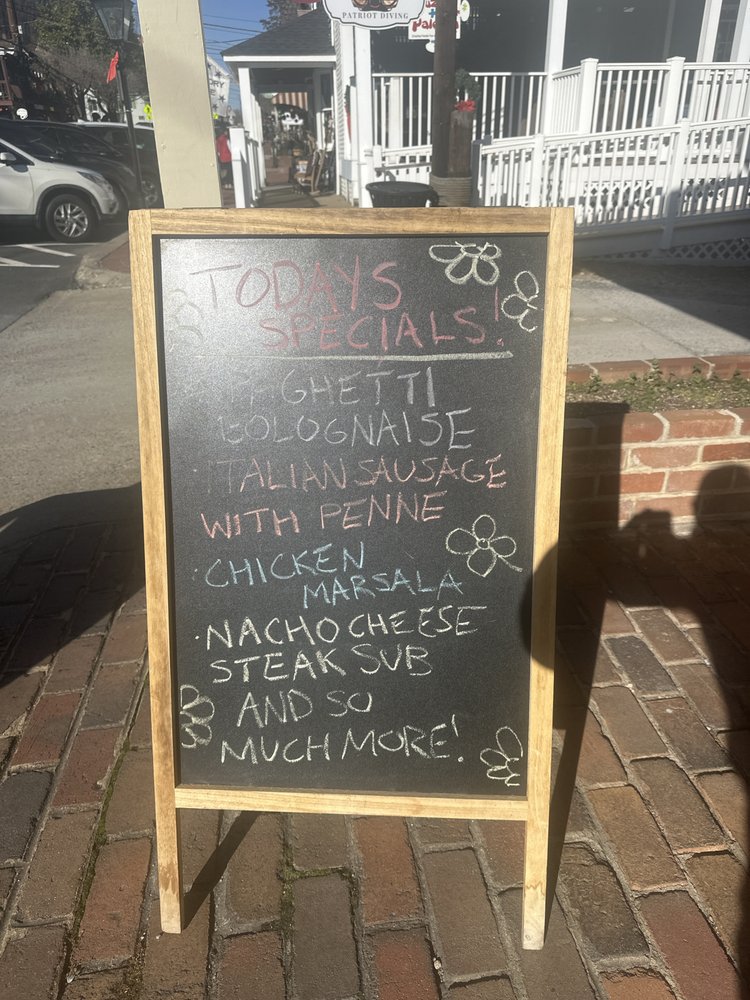 PATRIOT DIVING
TODAYS
SPECIALS!
SPAGHETTI
BOLOGNAISE
· ITALIAN SAUSAGE
WITH PENNE
· CHICKEN
MARSALA
· NACHO CHEESE
STEAK SUB
AND SO
MUCH MORE!